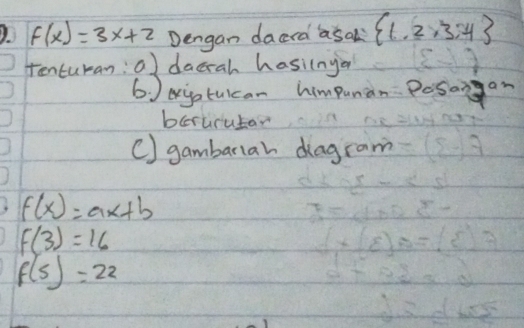 f(x) = 3x+2 Dengan daerah asal: {1, 2, 3, 4}
Tentukan: a) daerah hasilnya
b.) nyatukan himpunan Pasangan
berurutan
c) gambarlah diagram
f(x) = ax+b
f(3) = 16
f(5) = 22